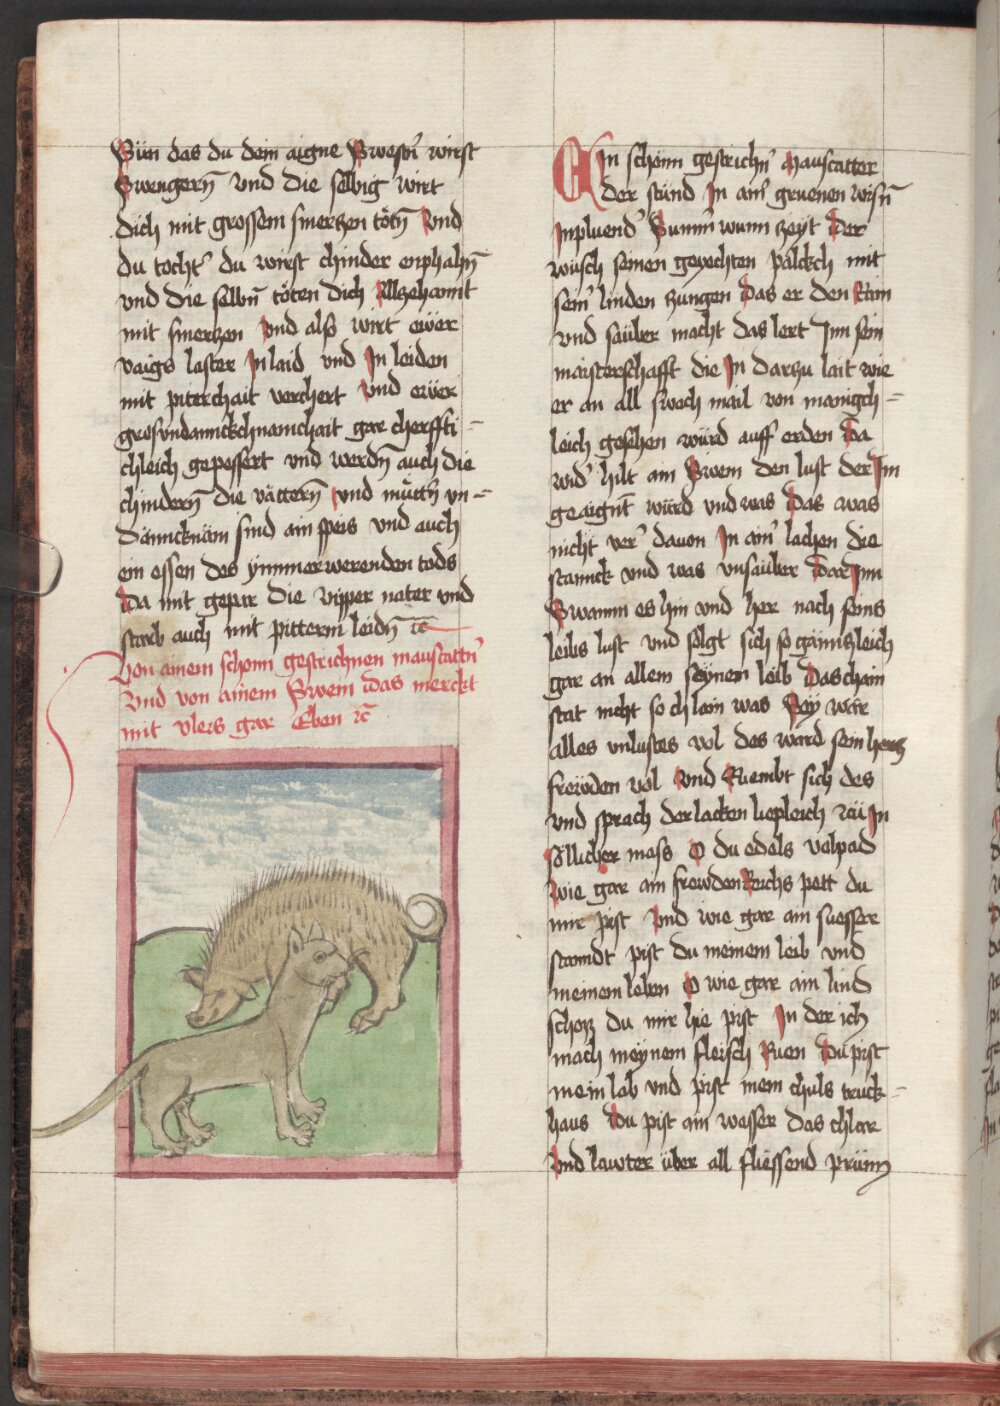 Sün das du dein aigne Swestr̄ wirst
Swengern̄ vnd die selbig wirt
dich mit grossem smerczen tötn̄ vnd
du tocht' du wirst chinder enphahn̄
vnd die selbn̄ töten dich Allczehannt
mit smerczen vnd also wirt ewer
vaigs laster In laid vnd In leiden
mit piterchait verchert vnd ewer
gros vndannckchnamchait gar chreffti-
chleich gepessert vnd werdn̄ auch die
chindern̄ die vättern̄ vnd müttr̄ vn-
danncknäm sind ain speis vnd auch
ein essen des ymmerwerenden tods
Da mit gepar die vipper nater vnd
starb auch mit pitterm leidn̄ ꝛc̄
Von ainem schonn gestrichnen mauscattn̄
Vnd von ainem Swein das merckt
mit vleis gar Eben ꝛc̄
Ein schönn gestrichn̄ Mauscatter
der stünd In ain' gruenen wisn̄
Inpluend' Summ' wunn zeyt Der
wusch seinen gevechten pälckch mit
sein' linden zungen Das er den Rain
vnd säuber macht das lert Inn sein
maisterschafft die In darzu lait wie
er an all swech mail von manigch-
leich gesehen würd auff erden Da
wid' hilt ain Swein den lust der Im
geaignt würd vnd was Das was
nicht ver' dauon In ain' lachen die
stannck vnd was vnsäuber Dar Inn
Swamm es hin vnd her nach seins
leibs lust vnd solgt sich so gänntzleich
gar an allem seynem leib Das chain
stat nicht so chlain was Sey wär
alles vnlustes vol des ward sein hertz
frewden vol vnd Ruembt sich des
vnd sprach der lacken liepleich zu In
sölicher mass O du edels volpad
wie gar ain frewdenReichs pett du
mir pist vnd wie gar ain suesser
stanndt pist du meinem leib vnd
meinem leben O wie gar ain lind
schos du mir hie pist In der ich
mach meynem fleisch Ruen Du pist
mein lab vnd pist mein chuls truck-
haus Du pist ain wasser das chlar
vnd lawter über all fliessend prünn